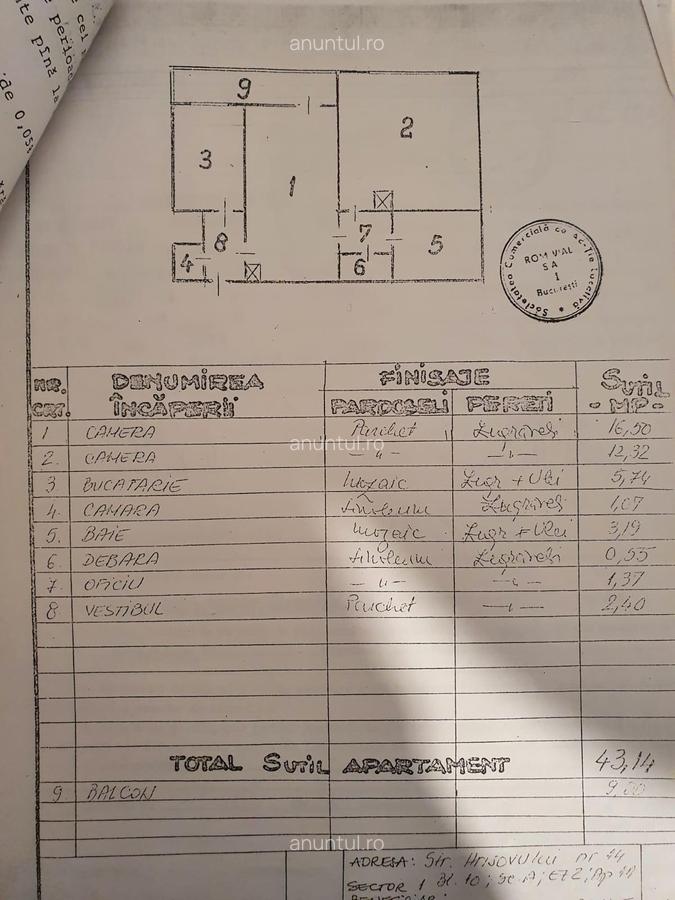 anuntul.ro
te pînă la
de 0,05%
9
2
3
1
7
8
5
4
6
Societatea Comercială cu acţie Lucativă
ROMVIAL
SA
1
Bucureşti
NR. CRT. DENUMIREA ÎNCĂPERII FINISAJE SUTIL - MP -
PARDOSELI PERETI
1 CAMERA Parchet Zugrăveli 16,50
anuntul.ro
2. CAMERA — " — — " — 12,32
3. BUCATARIE Mozaic Zugr + Ulei 5,74
4. CAMARA Linoleum Zugrăveli 1,07
5. BAIE Mozaic Zugr + Ulei 3,19
6. DEBARA Linoleum Zugrăveli 0,55
7. OFICIU — " — — " — 1,37
8 VESTIBUL Parchet — " — 2,40
TOTAL SUTIL APARTAMENT 43,14
9 BALCON 9,00
anuntul.ro
ADRESA: Str. Hrisovului nr 14
SECTOR 1 Bl. 10; Sc. A; ET 2; Ap 11